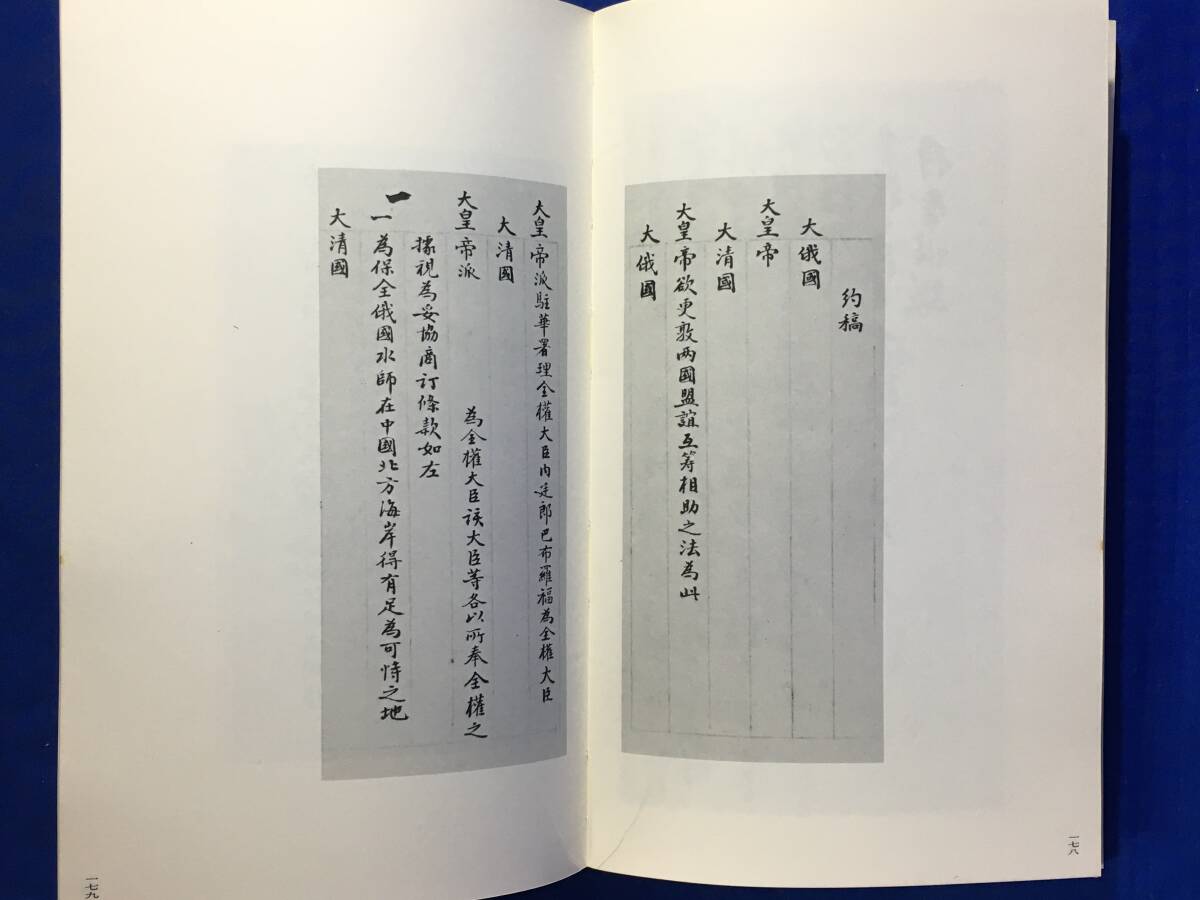 約稿
大俄國
大皇帝
大清國
大皇帝欲更敦兩國盟誼互籌相助之法為此
大俄國
一七八
大皇帝派駐華署理全權大臣內廷郎巴布羅福為全權大臣
大清國
大皇帝派 為全權大臣該大臣等各以所奉全權之
據視為妥協商訂條款如左
一為保全俄國水師在中國北方海岸得有足為可恃之地
大清國
一七九